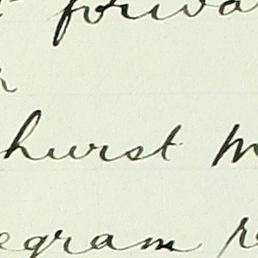 forwa
hurst M
egram r